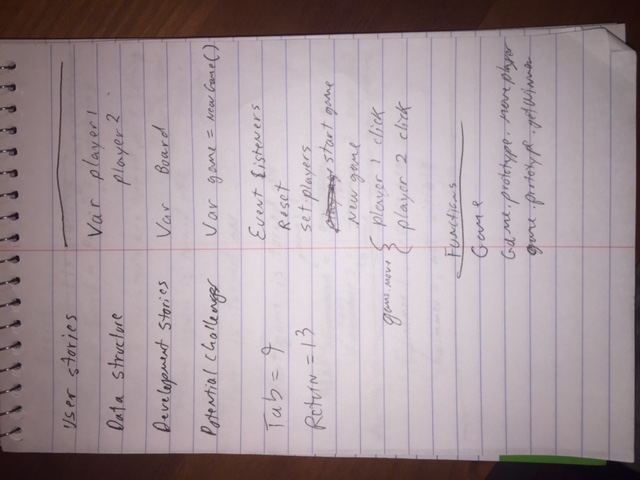 User stories
Data structure
Development stories
Potential Challenges
Tab = 9
Return = 13
Var player1
player2
Var Board
Var game = new Game()
Event Listeners
Reset
set players
start game
New game
game.move { player 1 click
player 2 click
Functions
Game
Game.prototype.moveplayer
game.prototype.getWinner